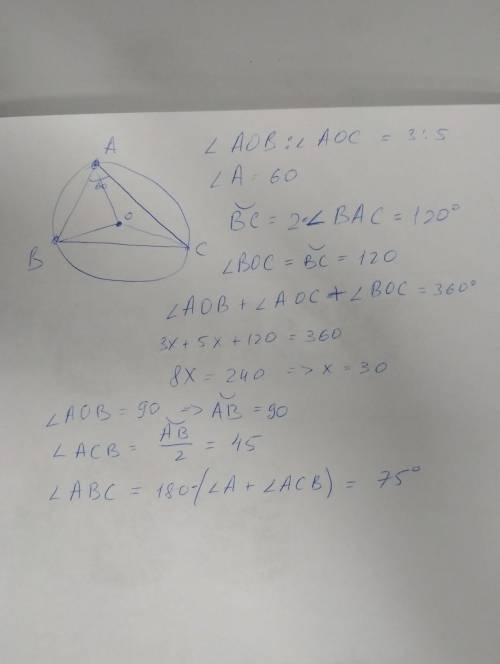 A
60
O
B
C
∠AOB : ∠AOC = 3:5
∠A = 60
B͝C = 2·∠BAC = 120°
∠BOC = B͝C = 120
∠AOB + ∠AOC + ∠BOC = 360°
3x + 5x + 120 = 360
8x = 240 => x = 30
∠AOB = 90 => A͝B = 90
∠ACB = A͝B/2 = 45
∠ABC = 180-(∠A + ∠ACB) = 75°